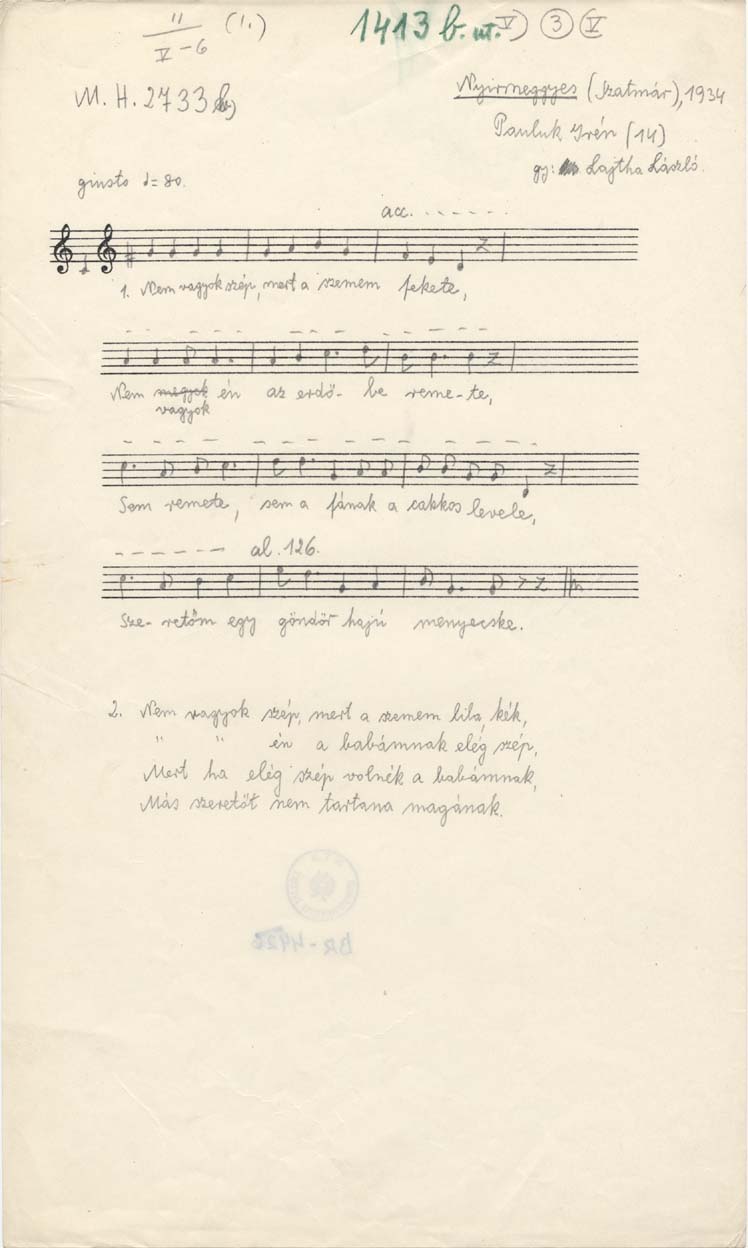 11 (1.)
V-6
1413 b. ut. V) 3 (V
M. H. 2733 b)
Nyirmeggyes (Szatmár), 1934
Pauluk Irén (14)
gy: Lajtha László.
giusto = 80.
acc. . - - - - -
1. Nem vagyok szép, mert a szemem fekete,
Nem mégyek én az erdő- be reme-te,
vagyok
Sem remete, sem a fának a cakkos levele,
- - - - - - al. 126.
Sze- retőm egy göndör hajú menyecske.
2. Nem vagyok szép, mert a szemem lila, kék,
" " én a babámnak elég szép,
Mert ha elég szép volnék a babámnak,
Más szeretőt nem tartana magának.